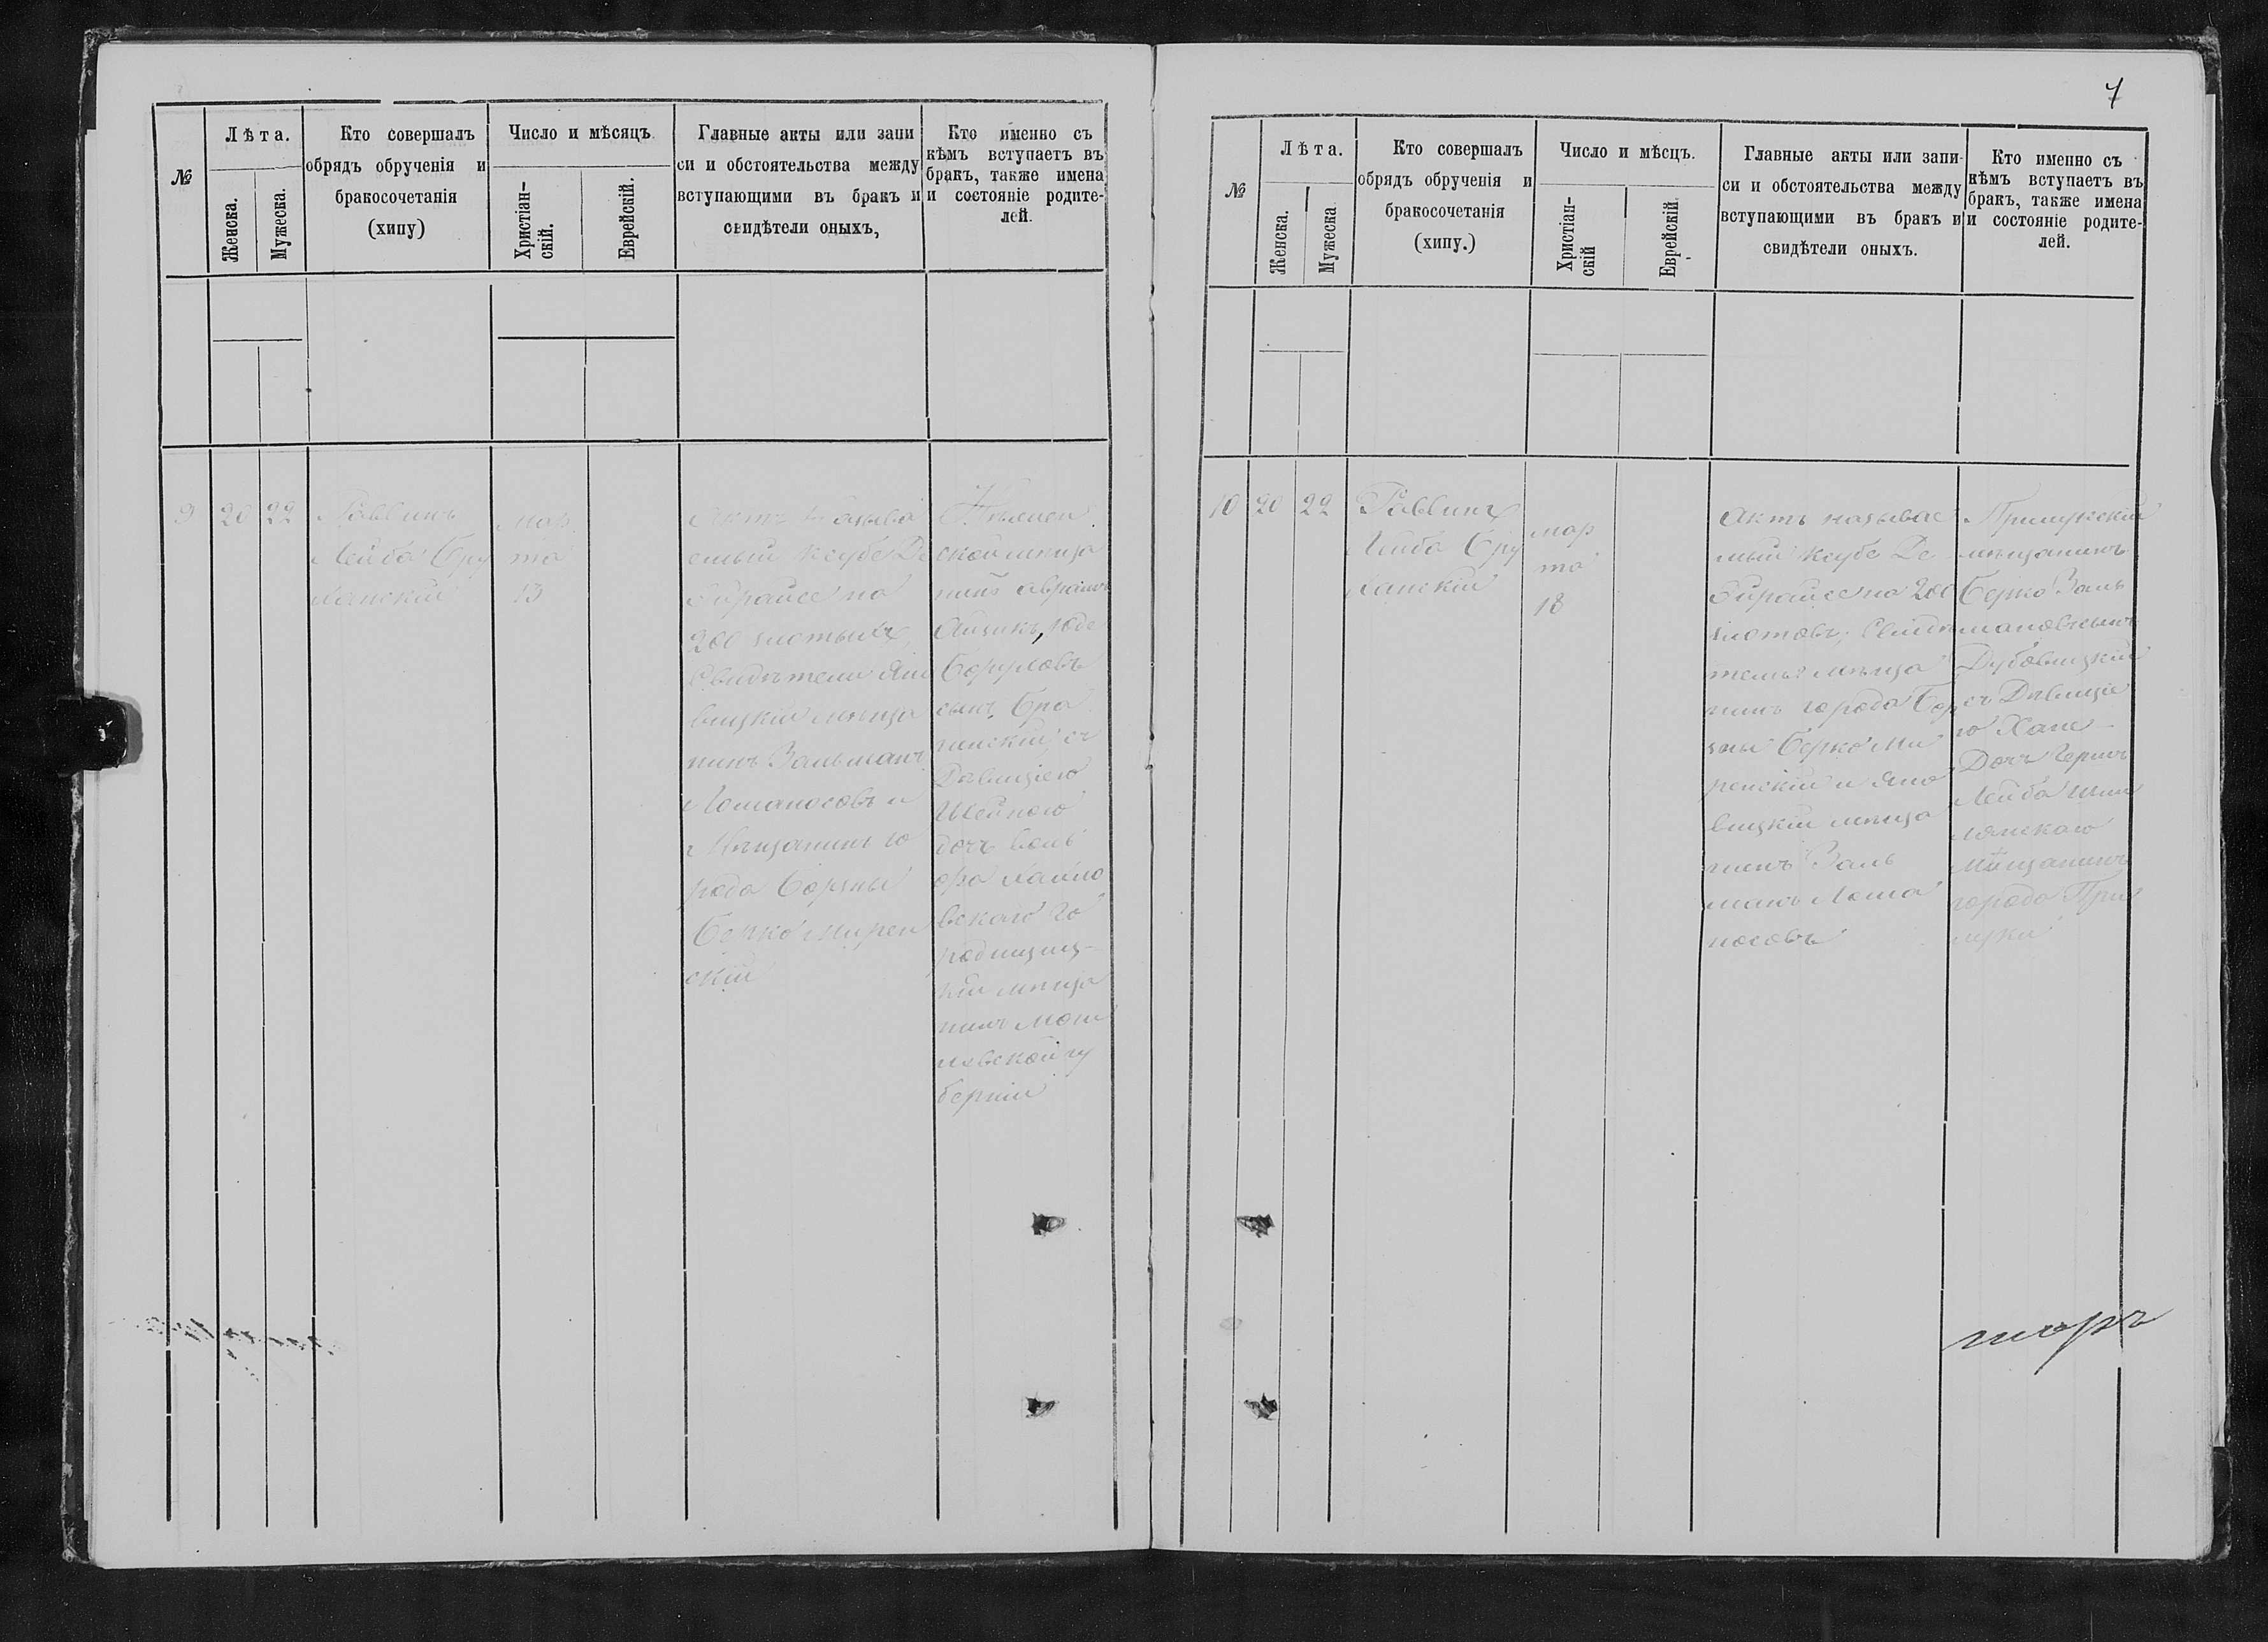 №
Лѣта.
Женска.
Мужеска.
Кто совершалъ
обрядъ обрученія и
бракосочетанія
(хипу)
Число и мѣсяцъ
Христіан-
скій.
Еврейскій.
Главные акты или запи
си и обстоятельства между
вступающими въ бракъ и
свидѣтели оныхъ,
Кто именно съ
кѣмъ вступаетъ въ
бракъ, также имена
и состояніе родите-
лей.
9
20
22
Раввинъ
Лейба Бру
мар
та
13
емый ксубе Де
200 злотыхъ
Свидѣтели Яно
вицкій мѣща
нинъ Зальманъ
Ломаносовъ и
Мѣщанинъ го
рода Борзны
Берко Мирен
скій
ской мѣща
нинъ Абрамъ
сынъ
съ
Дѣвицею
Шейною
дочь
вскаго Го
кій мѣща
нинъ Моги
левской гу
берніи
7
№
Лѣта.
Женска.
Мужеска
Кто совершалъ
обрядъ обрученія и
бракосочетанія
(хипу.)
Число и мѣсцъ.
Христіан-
скій
Еврейскій
Главные акты или запи-
си и обстоятельства между
вступающими въ бракъ и
свидѣтели оныхъ.
Кто именно съ
кѣмъ вступаетъ въ
бракъ, также имена
и состояніе родите-
лей.
10
20
22
Раввинъ
Лейба Бру
ханскій
мар
та
18
Актъ называе
мый ксубе Де
Эйрайсе на 200
злотовъ; Свидѣ
тели: мѣща
нинъ города Бор
зны Берко Ми
ренскій и Яно
вицкій мѣща
нинъ Заль
манъ Лома
носовъ
Прилукскій
мѣщанинъ
Берко Заль
мановъ сынъ
Дубовицкій
съ Дѣвице
ю Хане
Лейба
лянскаго
Мѣщанинъ
города При
луки